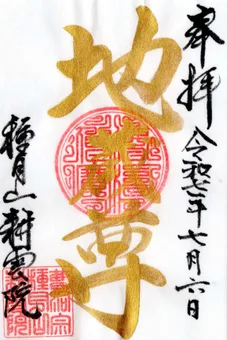 奉拝
令和七年七月六日
地蔵尊
種月山耕雲院